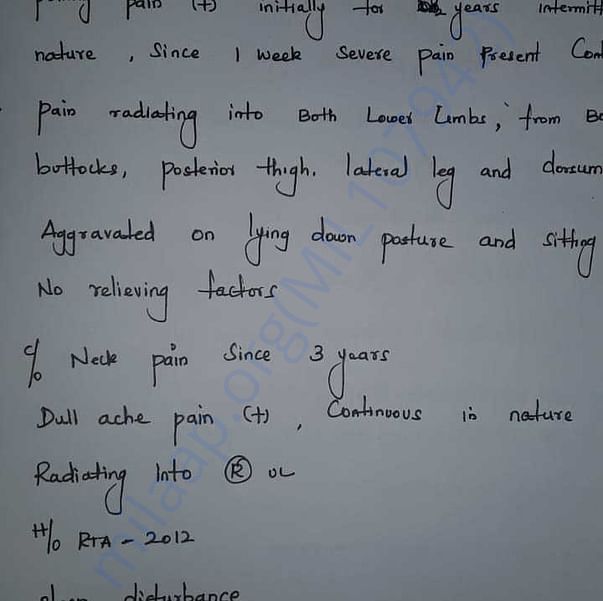 pain (+) initially for years intermitt
nature , Since 1 week Severe pain Present Con
Pain radiating into Both Lower Limbs, from B
buttocks, posterior thigh. lateral leg and dorsum
Aggravated on lying down posture and sitting
No relieving factors
c/o Neck pain Since 3 years
Dull ache pain (+) , Continuous in nature
Radiating Into Ⓡ UL
H/o RTA - 2012
disturbance
milaap.org(MIL107942)